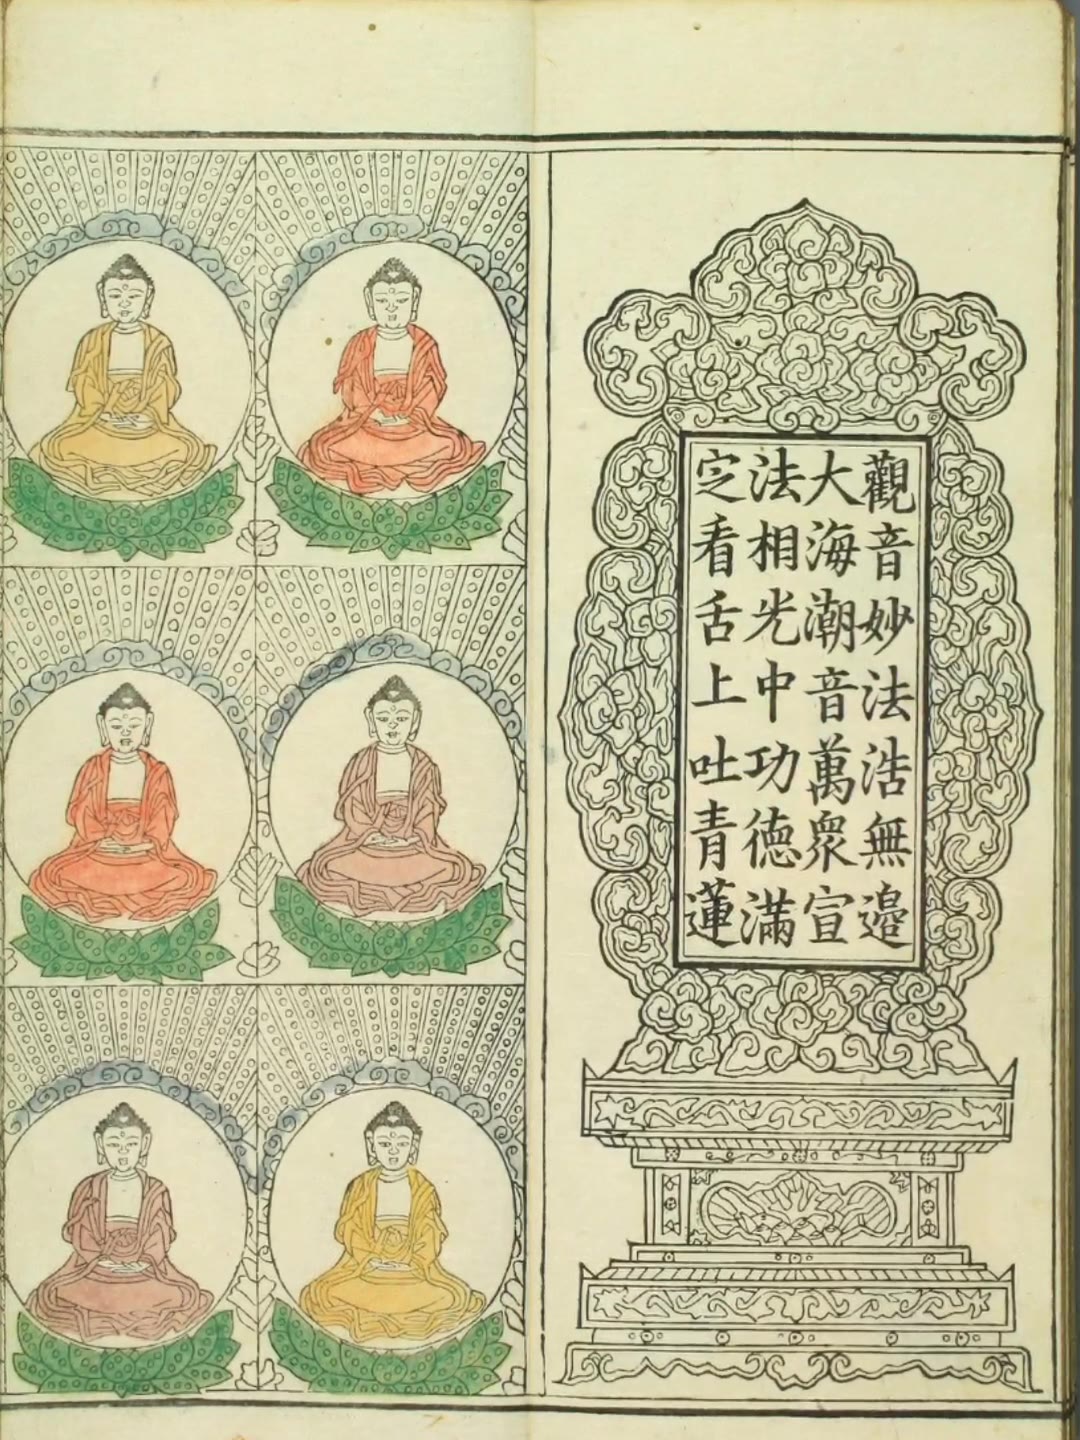 觀音妙法浩無邉
大海潮音萬衆宣
法相光中功德滿
定看舌上吐青蓮